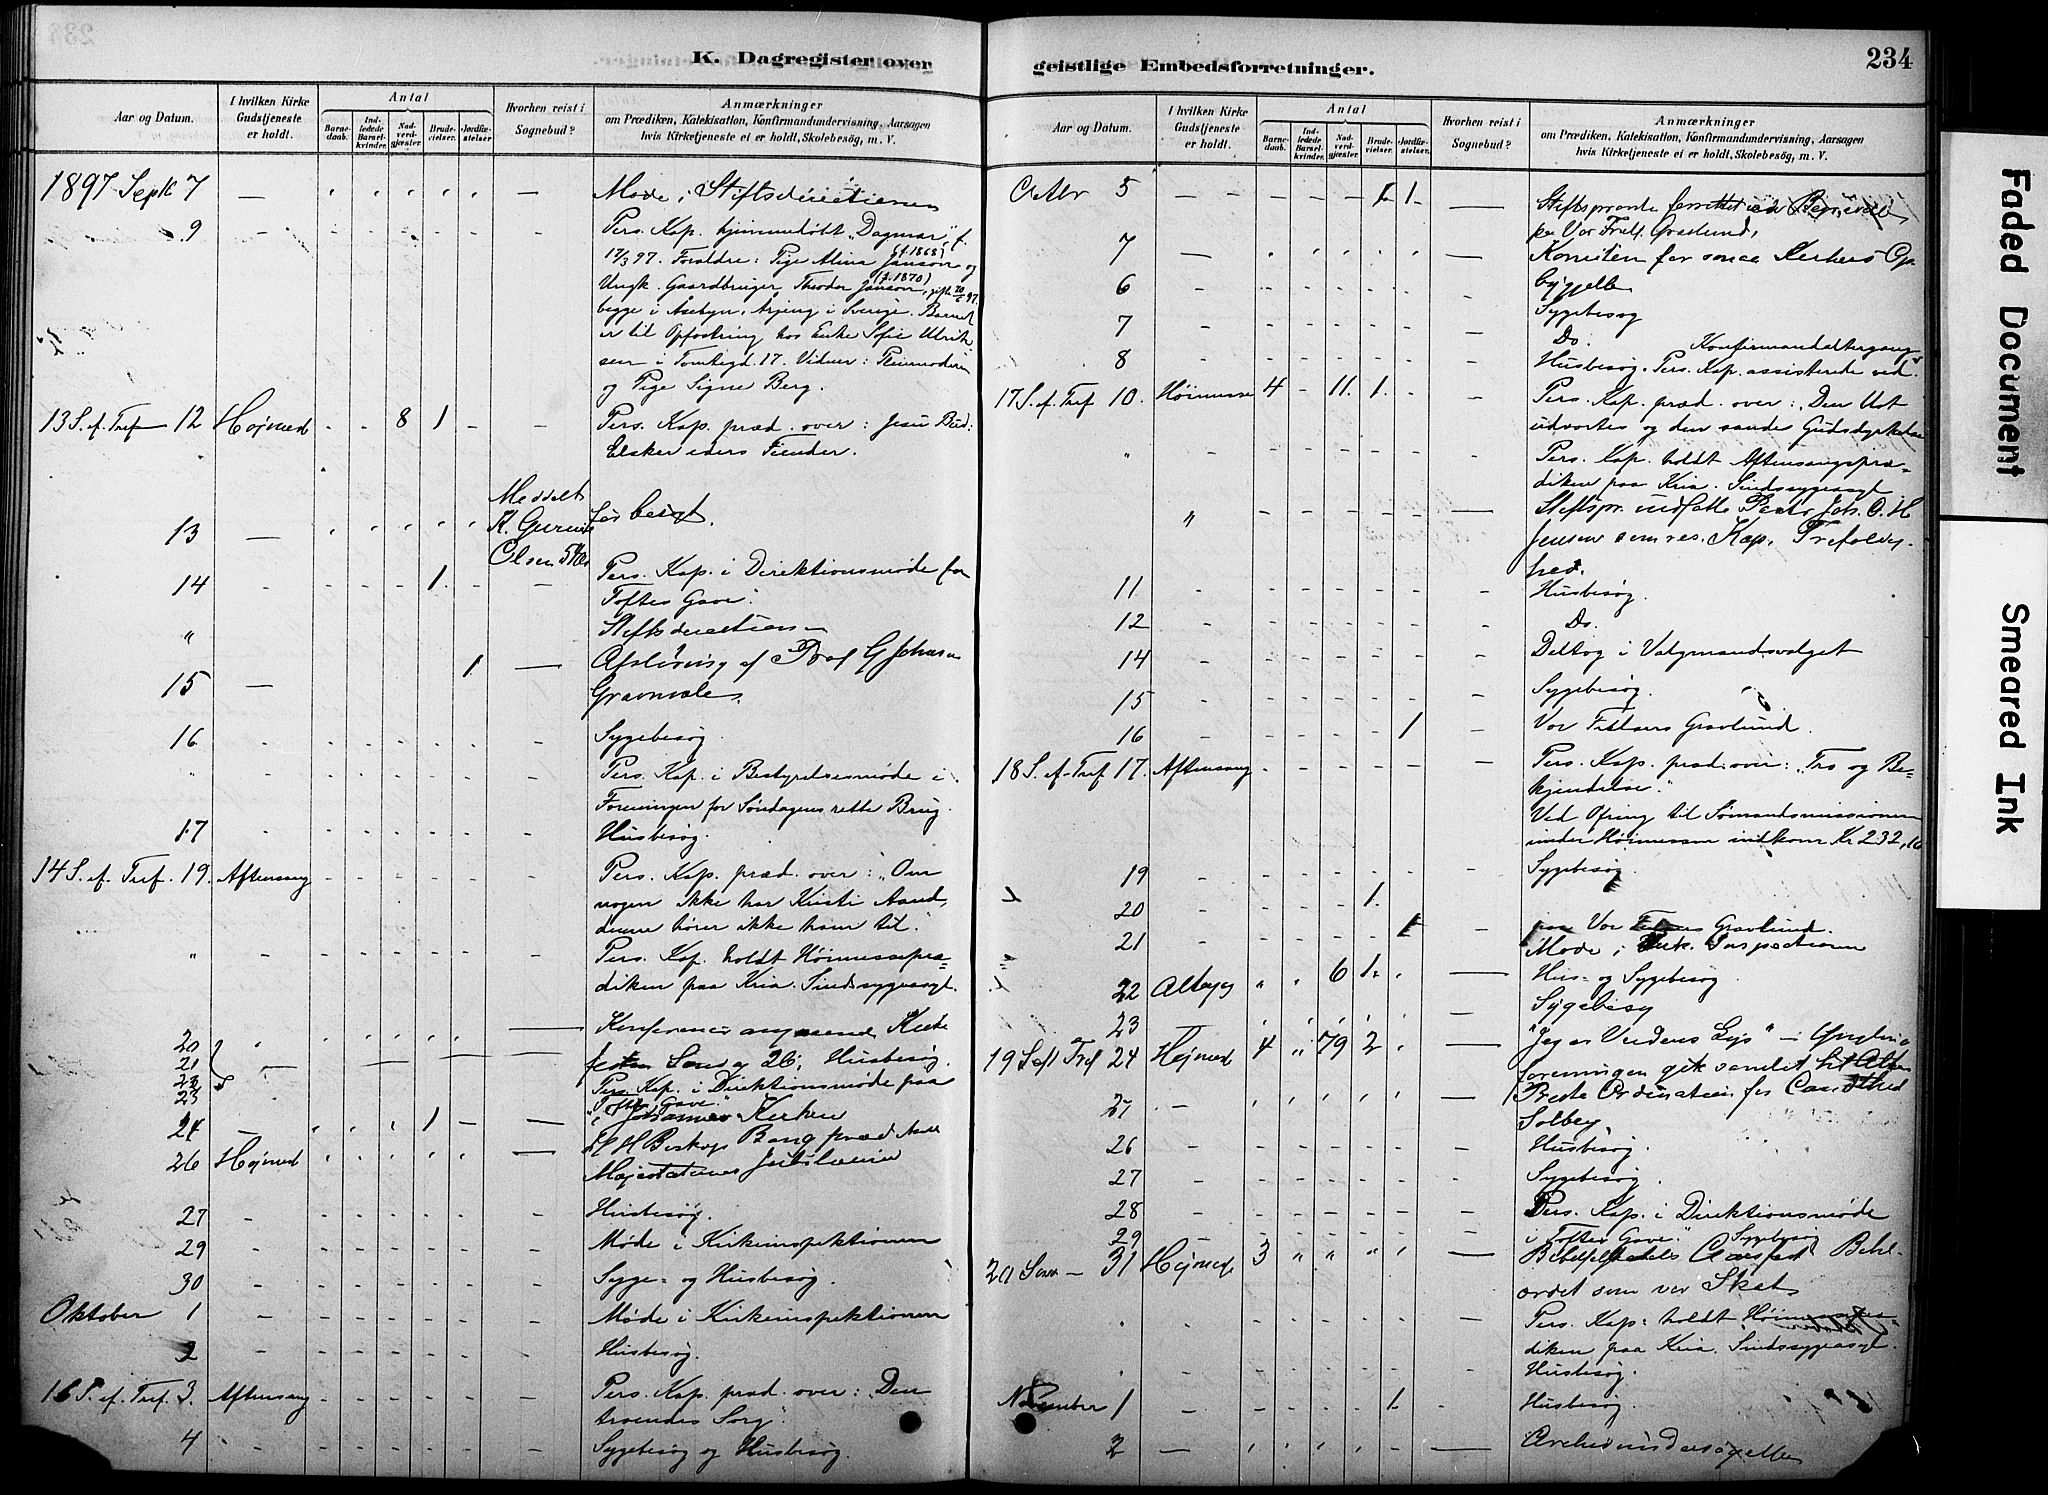 K. Dagregister over
geistlige Embedsforretninger.
234
Aar og Datum.
I hvilken Kirke Gudstjeneste er holdt.
Antal
Barnedaab.
Indledede Barselkvinder.
Nadverdgjæster.
Brudevielser.
Jordfæstelser.
Hvorhen reist i Sognebud?
Anmærkninger
om Prædiken, Katekisation, Konfirmandundervisning, Aarsagen
hvis Kirketjeneste ei er holdt, Skolebesög, m. V.
1897 Sept 7 — Møde i Stiftsdirectionen
9 Pers. Kap. hjemmedøbt „Dagmar", f.
17/3 97. Forældre: Pige Alma Janson (f. 1868) og
Ungk. Gaardbruger Theodor Janson (f. 1870), gift
begge i Årjeng i Sverige. Barnet
er til Opfostring hos Enke Sofie Ulrik-
sen i Tomtegd. 17. Vidner: Pleiemoderen
og Pige Signe Berg.
13 S. ef. Tref 12 Højmed - - 8 1 - - Pers. Kap. præd. over: Jesu Bud:
Elsker eders Fiender.
Meddelt
13 — K.
Olsen
14 1. Pers. Kap. i Direktionsmøde for
„Toftes Gave".
" Stiftsdirectionen
15 — 1 — Afsløring af Prof G Johnson
Gravmæle.
16 Sygebesøg.
" Pers. Kap. i Bestyrelsesmøde i
Foreningen for Søndagens rette Brug.
17 Husbesøg.
14 S. ef. Tref. 19. Aftensang Pers. Kap. præd. over: „Om
nogen ikke har Kristi Aand,
denne hører ikke ham til".
" Pers. Kap. holdt Høimessepræ-
diken paa Kria. Sindssygeasyl.
20 Konferencer angaaende Kirke
21 festen Sønd ag 26; Husbesøg.
22 Pers. Kap. i Direktionsmøde paa
23 „Toftes Gave."
24 — 1 — i Johannes Kirken
26 Højmed Biskop Bang præd
Majestætens Jubilæum
27 Husbesøg.
29 Møde i Kirkeinspektionen
30 Syge- og Husbesøg.
Oktober 1 Møde i Kirkeinspektionen
2 Husbesøg.
16 S. ef. Tref. 3. Aftensang Pers. Kap. præd. over: Den
troendes Sorg".
4 Sygebesøg og Husbesøg.
Aar og Datum.
I hvilken Kirke Gudstjeneste er holdt.
Antal
Barnedaab.
Indledede Barselkvinder.
Nadverdgjæster.
Brudevielser.
Jordfæstelser.
Hvorhen reist i Sognebud?
Anmærkninger
om Prædiken, Katekisation, Konfirmandundervisning, Aarsagen
hvis Kirketjeneste ei er holdt, Skolebesög, m. V.
Octbr 5 1. 1 Stiftsprovste forrettet
paa Vor Frels. Gravlund,
7 Komiteen for Kirkers Op-
byggelse
6 Sygebesøg
7 Do. Konfirmandaltergang.
8 Husbesøg. Pers. Kap. assisterede ved
17 S. ef. Tref 10. Høimesse 4 - 11. 1. Pers. Kap. præd. over: „Den
udvortes og den sande Gudsdyrkelse
" Pers. Kap. holdt Aftensangspræ-
diken paa Kria. Sindssygeasyl
" Stiftspr. indsatte Pastor Joh. O. H
Jensen som res. Kap. Trefoldig-
hed.
11 Husbesøg.
12 Do.
14 Deltog i Valgmandsvalget
15 Sygebesøg.
16 1 Vor Frelsers Gravlund.
18 S. ef. Tref 17. Aftensang Pers. Kap. præd. over: „Tro og Be-
kjendelse."
Ved Ofring til Sømandsmissionen
under Høimessen indkom Kr 232,16
19 Sygebesøg
20 1.
21 1 paa Vor Frelsers Gravlund.
Møde i Kirk. Inspectionen
22 Altergg " " 6 1. Hus- og Sygebesøg
23 Sygebesøg
19 S eft Tref 24 Højmed 4 " 79 2 "Jeg er Verdens Lys" —
foreningen gik samlet til Alters
27 — Ordination for Cand theol
Solberg
26 Husbesøg.
27 Sygebesøg.
28 Pers. Kap. i Direktionsmøde
29 i „Toftes Gave". Sygebesøg
20 Sønd — 31 Højmed 3 " " " Bibelselskabets Aarsfest Bibel-
ordet som vor Skat
" Pers. Kap. holdt Høimessepræ-
diken paa Kria. Sindssygeasyl.
Husbesøg.
November 1 1. Husbesøg.
2 —
Faded Document
Smeared Ink